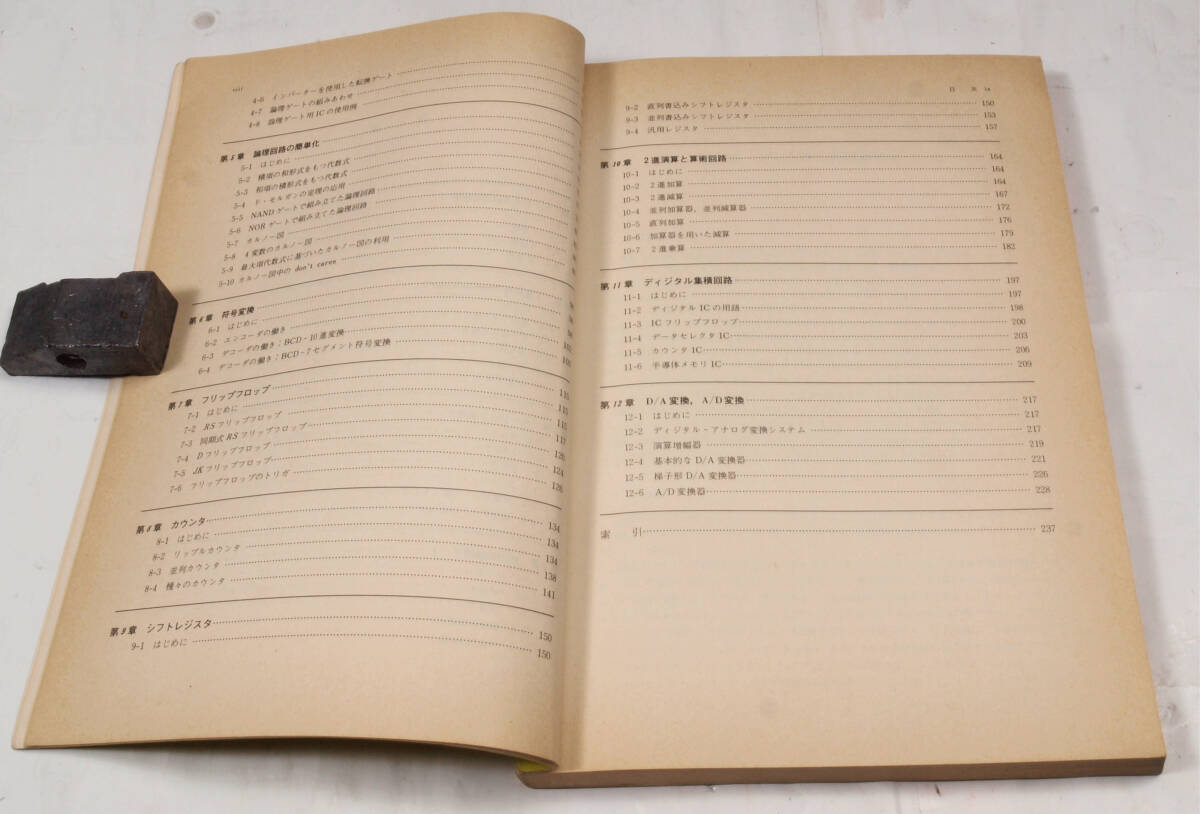 viii
4-6 インバーターを使用した転換ゲート
4-7 論理ゲートの組みあわせ
4-8 論理ゲート用ICの使用例
第5章 論理回路の簡単化
5-1 はじめに
5-2 積項の和形式をもつ代数式
5-3 和項の積形式をもつ代数式
5-4 ド・モルガンの定理の応用
5-5 NANDゲートで組み立てた論理回路
5-6 NORゲートで組み立てた論理回路
5-7 カルノー図
5-8 4変数のカルノー図
5-9 最大項代数式に基づいたカルノー図の利用
5-10 カルノー図中のdon't caren
第6章 符号変換
6-1 はじめに
6-2 エンコーダの働き
6-3 デコーダの働き:BCD-10進変換
6-4 デコーダの働き:BCD-7セグメント符号変換
第7章 フリップフロップ 115
7-1 はじめに 115
7-2 RSフリップフロップ 115
7-3 同期式RSフリップフロップ 117
7-4 Dフリップフロップ 120
7-5 JKフリップフロップ 124
7-6 フリップフロップのトリガ 126
第8章 カウンタ 134
8-1 はじめに 134
8-2 リップルカウンタ 134
8-3 並列カウンタ 138
8-4 種々のカウンタ 141
第9章 シフトレジスタ 150
9-1 はじめに 150
目次 ix
9-2 直列書込みシフトレジスタ 150
9-3 並列書込みシフトレジスタ 153
9-4 汎用レジスタ 157
第10章 2進演算と算術回路 164
10-1 はじめに 164
10-2 2進加算 164
10-3 2進減算 167
10-4 並列加算器,並列減算器 172
10-5 直列加算 176
10-6 加算器を用いた減算 179
10-7 2進乗算 182
第11章 ディジタル集積回路 197
11-1 はじめに 197
11-2 ディジタルICの用語 198
11-3 ICフリップフロップ 200
11-4 データセレクタIC 203
11-5 カウンタIC 206
11-6 半導体メモリIC 209
第12章 D/A変換,A/D変換 217
12-1 はじめに 217
12-2 ディジタル・アナログ変換システム 217
12-3 演算増幅器 219
12-4 基本的なD/A変換器 221
12-5 梯子形D/A変換器 226
12-6 A/D変換器 228
索引 237